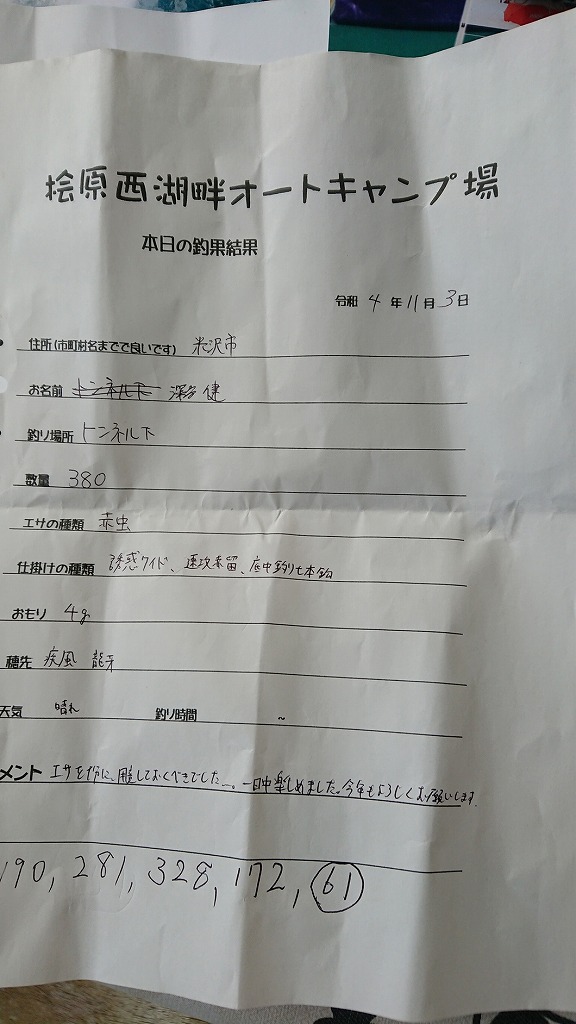 桧原西湖畔オートキャンプ場
本日の釣果結果
令和 4 年 11 月 3 日
住所(市町村名までで良いです) 米沢市
お名前 トンネル下 健
釣り場所 トンネル下
数量 380
エサの種類 赤虫
仕掛けの種類 誘惑ワイド、速攻素留、底中釣り七本鈎
おもり 4g
穂先 疾風 龍牙
天気 晴れ 釣り時間 ~
メント エサを十分に用意しておくべきでした…。一日中楽しめました。今年もよろしくお願いします。
190, 281, 328, 172, 61